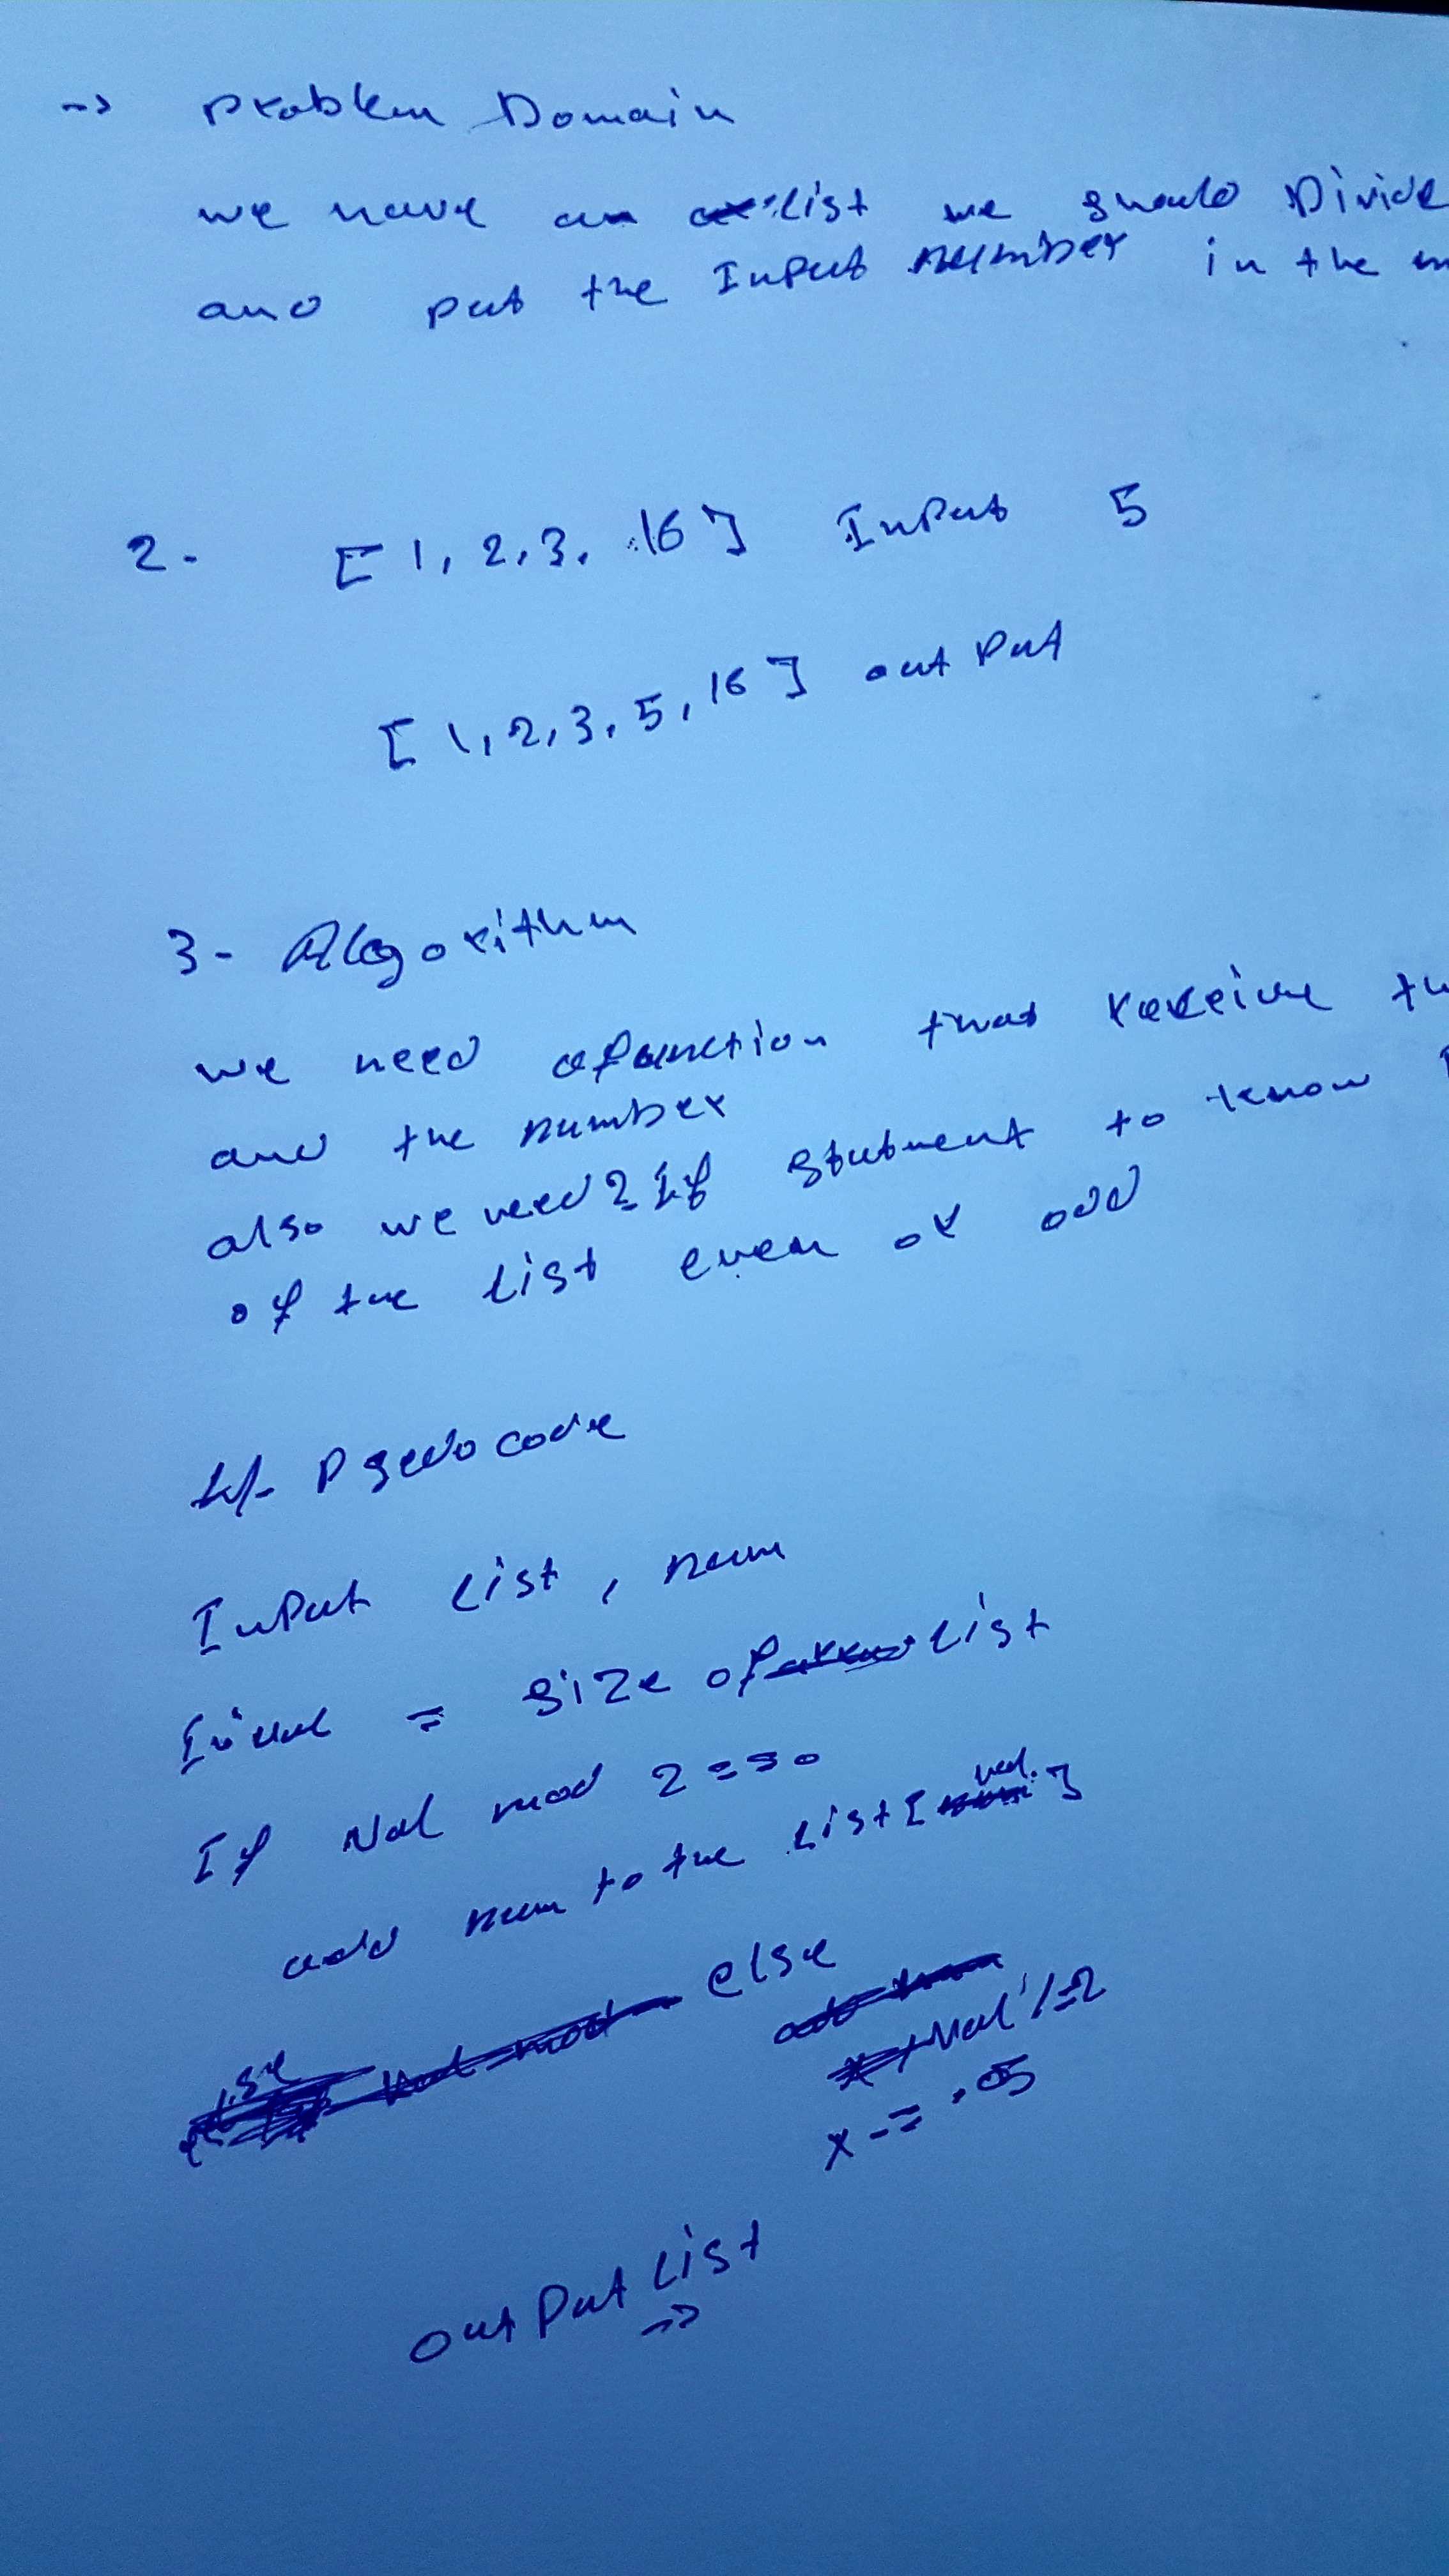 -> Problem Domain
we have an list we should Divide
and put the Input number in the m
2- [1, 2, 3, 16] Input 5
[1, 2, 3, 5, 16] out Put
3- Algorithm
we need a function that receive th
and the number
also we need 2 if statment to know
of the list even or odd
4- Psedo code
Input list, num
= size of list
If Val mod 2 == 0
add num to the list [val]
else
Val /= 2
x -= .05
out Put List
->